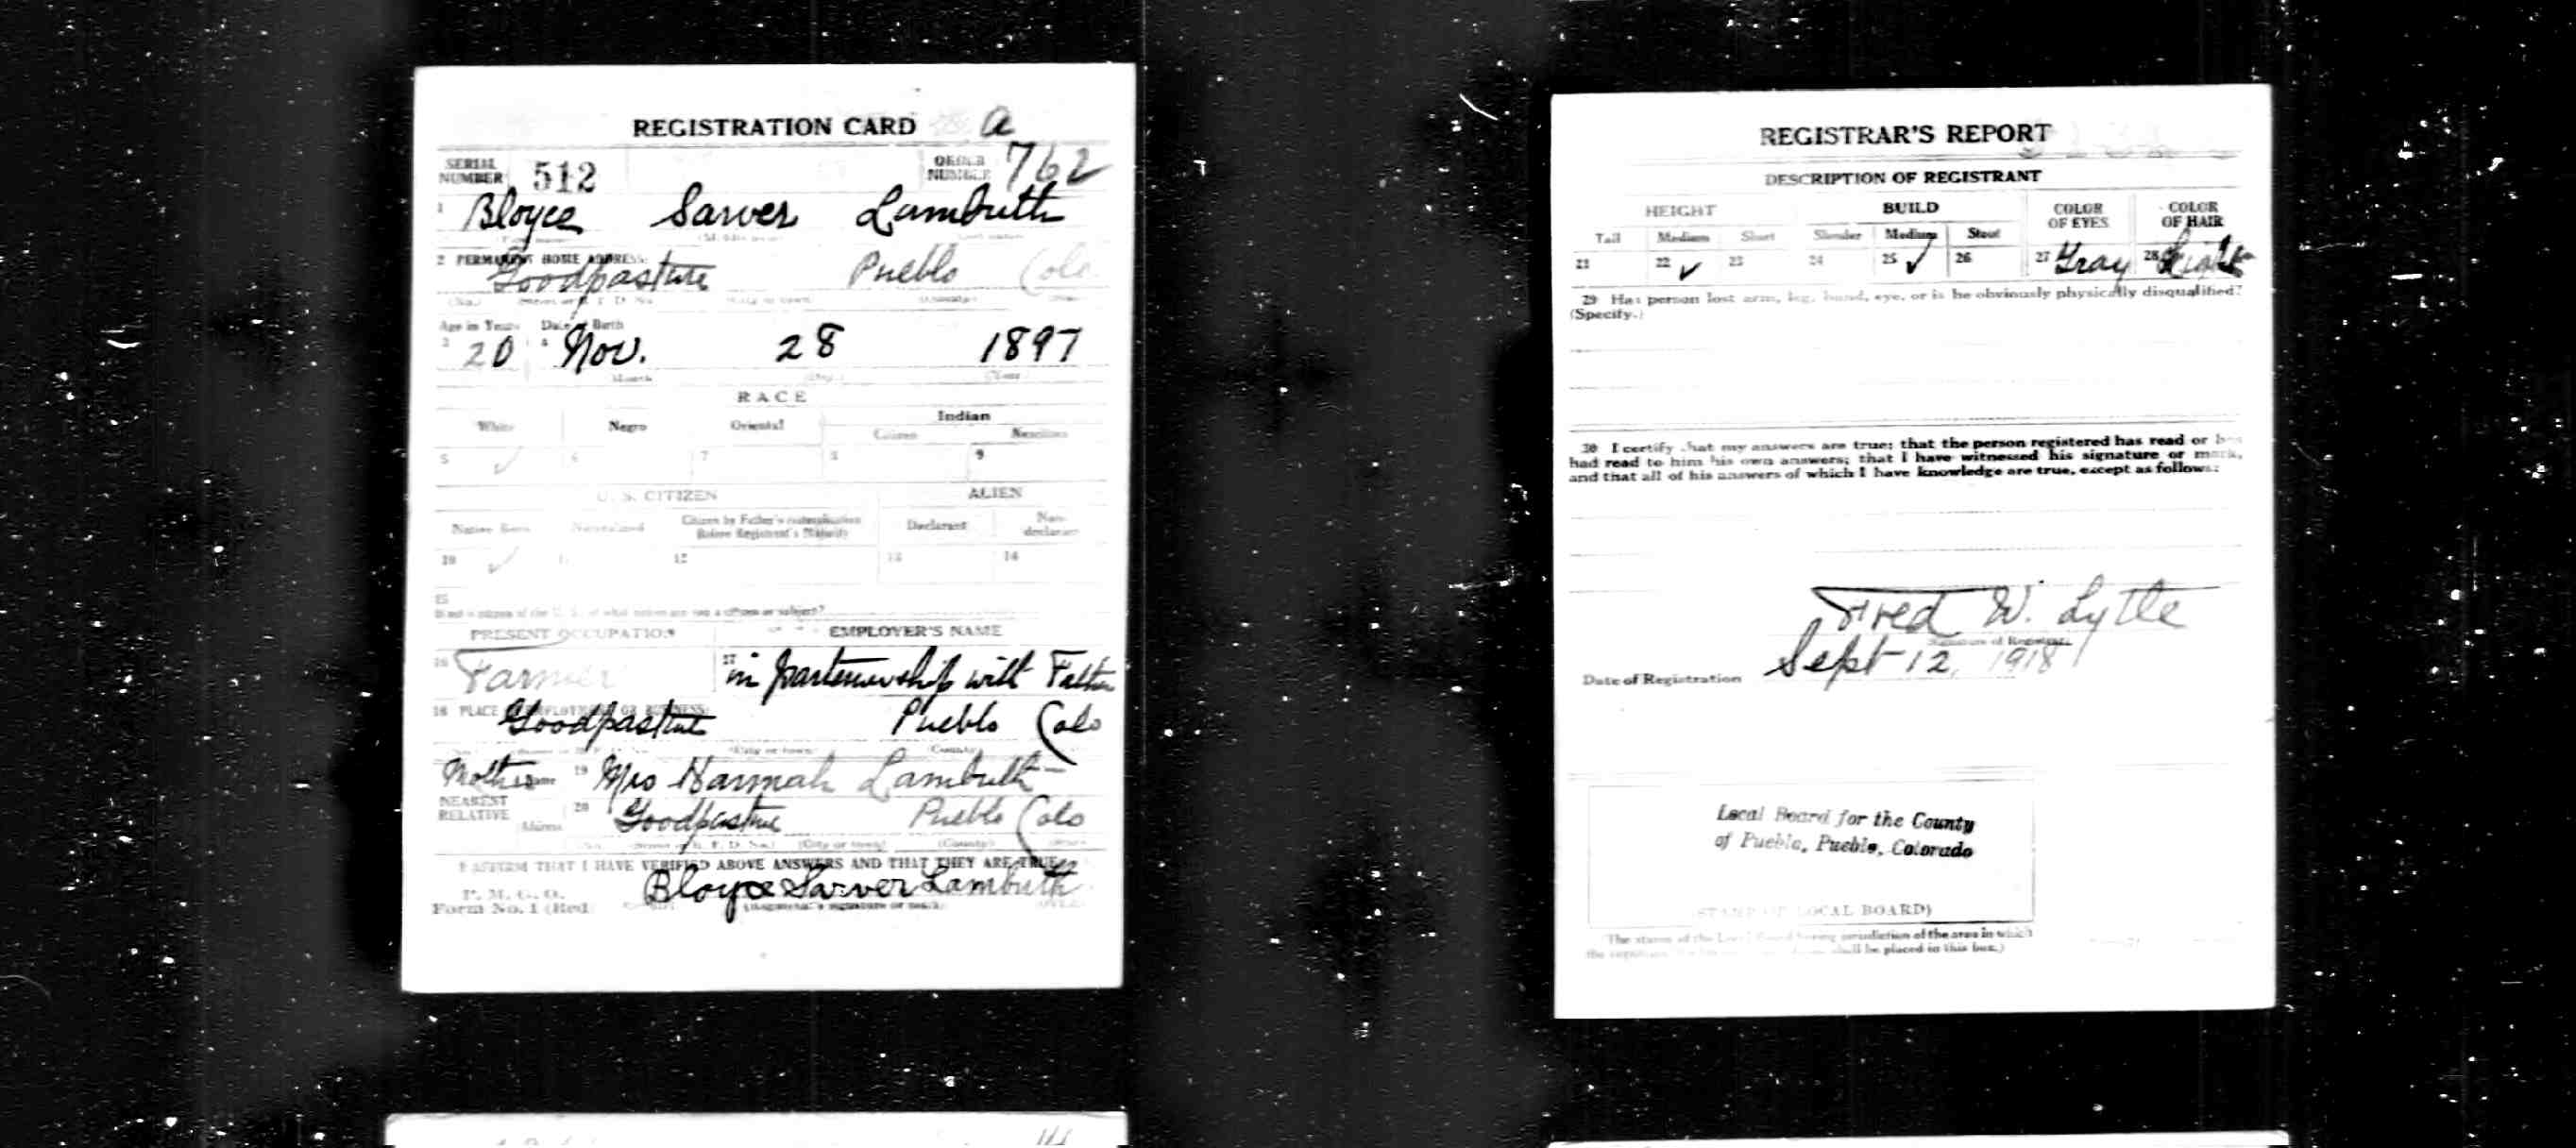 REGISTRATION CARD a
SERIAL NUMBER 512 ORDER NUMBER 762
1 Bloyce Sarver Lambuth
2 PERMANENT HOME ADDRESS:
Goodpasture Pueblo Colo.
(No.) (Street or R. F. D. No.) (City or town) (County)
Age in Years Date of Birth
3 20 4 Nov. 28 1897
Month (Day.) (Year)
RACE
White Negro Oriental Indian
Citizen Noncitizen
5 ✓ 6 7 8 9
U. S. CITIZEN ALIEN
Native Born Naturalized Citizen by Father's Naturalization Before Registrant's Majority Declarant Non-declarant
10 ✓ 11 12 13 14
15
If not a citizen of the U. S., of what nation are you a citizen or subject?
PRESENT OCCUPATION EMPLOYER'S NAME
16 Farmer 17 in partenership with Father
18 PLACE OF EMPLOYMENT OR BUSINESS:
Goodpasture Pueblo Colo
(City or town) (County)
Mother Name 19 Mrs Hannah Lambuth
NEAREST RELATIVE
Address 20 Goodpasture Pueblo Colo
(No.) (Street or R. F. D. No.) (City or town) (County) (State)
I AFFIRM THAT I HAVE VERIFIED ABOVE ANSWERS AND THAT THEY ARE TRUE
P. M. G. O.
Form No. 1 (Red) Bloyce Sarver Lambuth
(Registrant's signature or mark) (OVER)
REGISTRAR'S REPORT
DESCRIPTION OF REGISTRANT
HEIGHT BUILD COLOR OF EYES COLOR OF HAIR
Tall Medium Short Slender Medium Stout
21 22 ✓ 23 24 25 ✓ 26 27 Gray 28 Light
29 Has person lost arm, leg, hand, eye, or is he obviously physically disqualified?
(Specify.)
30 I certify that my answers are true; that the person registered has read or has
had read to him his own answers; that I have witnessed his signature or mark,
and that all of his answers of which I have knowledge are true, except as follows:
Fred W. Lytle
Signature of Registrar
Date of Registration Sept 12, 1918
Local Board for the County
of Pueblo, Pueblo, Colorado
(STAMP OF LOCAL BOARD)
(The stamp of the Local Board having jurisdiction of the area in which
the registrant shall be placed in this box.)